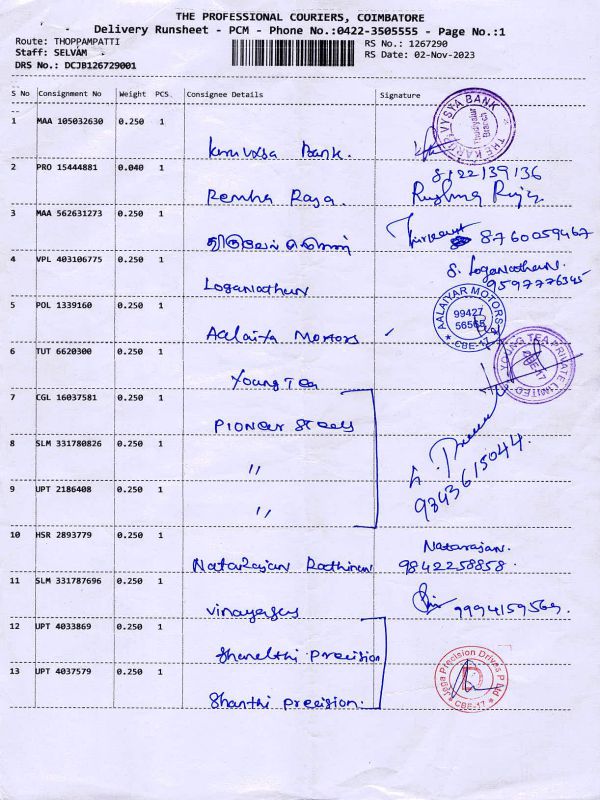 THE PROFESSIONAL COURIERS, COIMBATORE
Delivery Runsheet - PCM - Phone No.:0422-3505555 - Page No.:1
Route: THOPPAMPATTI
Staff: SELVAM
DRS No.: DCJB126729001
RS No.: 1267290
RS Date: 02-Nov-2023
S No Consignment No Weight PCS. Consignee Details Signature
1 MAA 105032630 0.250 1
Bank.
VYSYA BANK
Branch
2 PRO 15444881 0.040 1
Raja.
8122139136
3 MAA 562631273 0.250 1
8760059467
4 VPL 403106775 0.250 1
Loganathan
S. Loganathan.
9597776345
5 POL 1339160 0.250 1
Motors
AALAIYAR MOTORS
99427
56565
CBE-17
6 TUT 6620300 0.250 1
Young Tea
YOUNG TEA PRIVATE LIMITED
7 CGL 16037581 0.250 1
Pioneer Steels
8 SLM 331780826 0.250 1
"
9843615044.
9 UPT 2186408 0.250 1
"
10 HSR 2893779 0.250 1
Natarajan
Natarajan.
9842258858
11 SLM 331787696 0.250 1
9994159569.
12 UPT 4033869 0.250 1
Precision
13 UPT 4037579 0.250 1
Shanthi Precision.
Precision Drives P Ltd
CBE-17